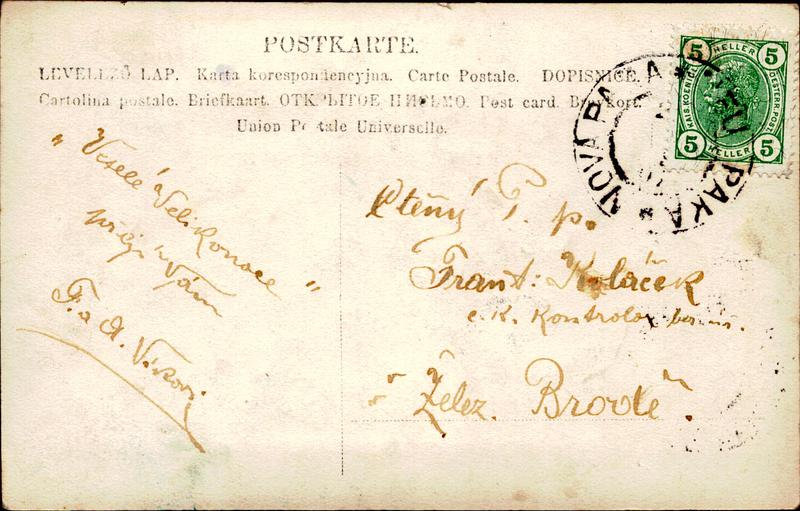 POSTKARTE.
LEVELLZŐ LAP. Karta korespondencyjna. Carte Postale. DOPISNICE.
Cartolina postale. Briefkaart. ОТКРЫТОЕ ПИСЬМО. Post card. Brevkort.
Union Postale Universelle.
5 HELLER 5
KAIS.KOENIGL. OESTERR.POST.
5 HELLER 5
NOVÁ PAKA
NOVA PAKA
„Veselé Velikonoce
přejí Vám"
F. a A.
Ctěný P. p.
Frant. Koláček
c. k. Kontrolor
v Želez. Brodě.